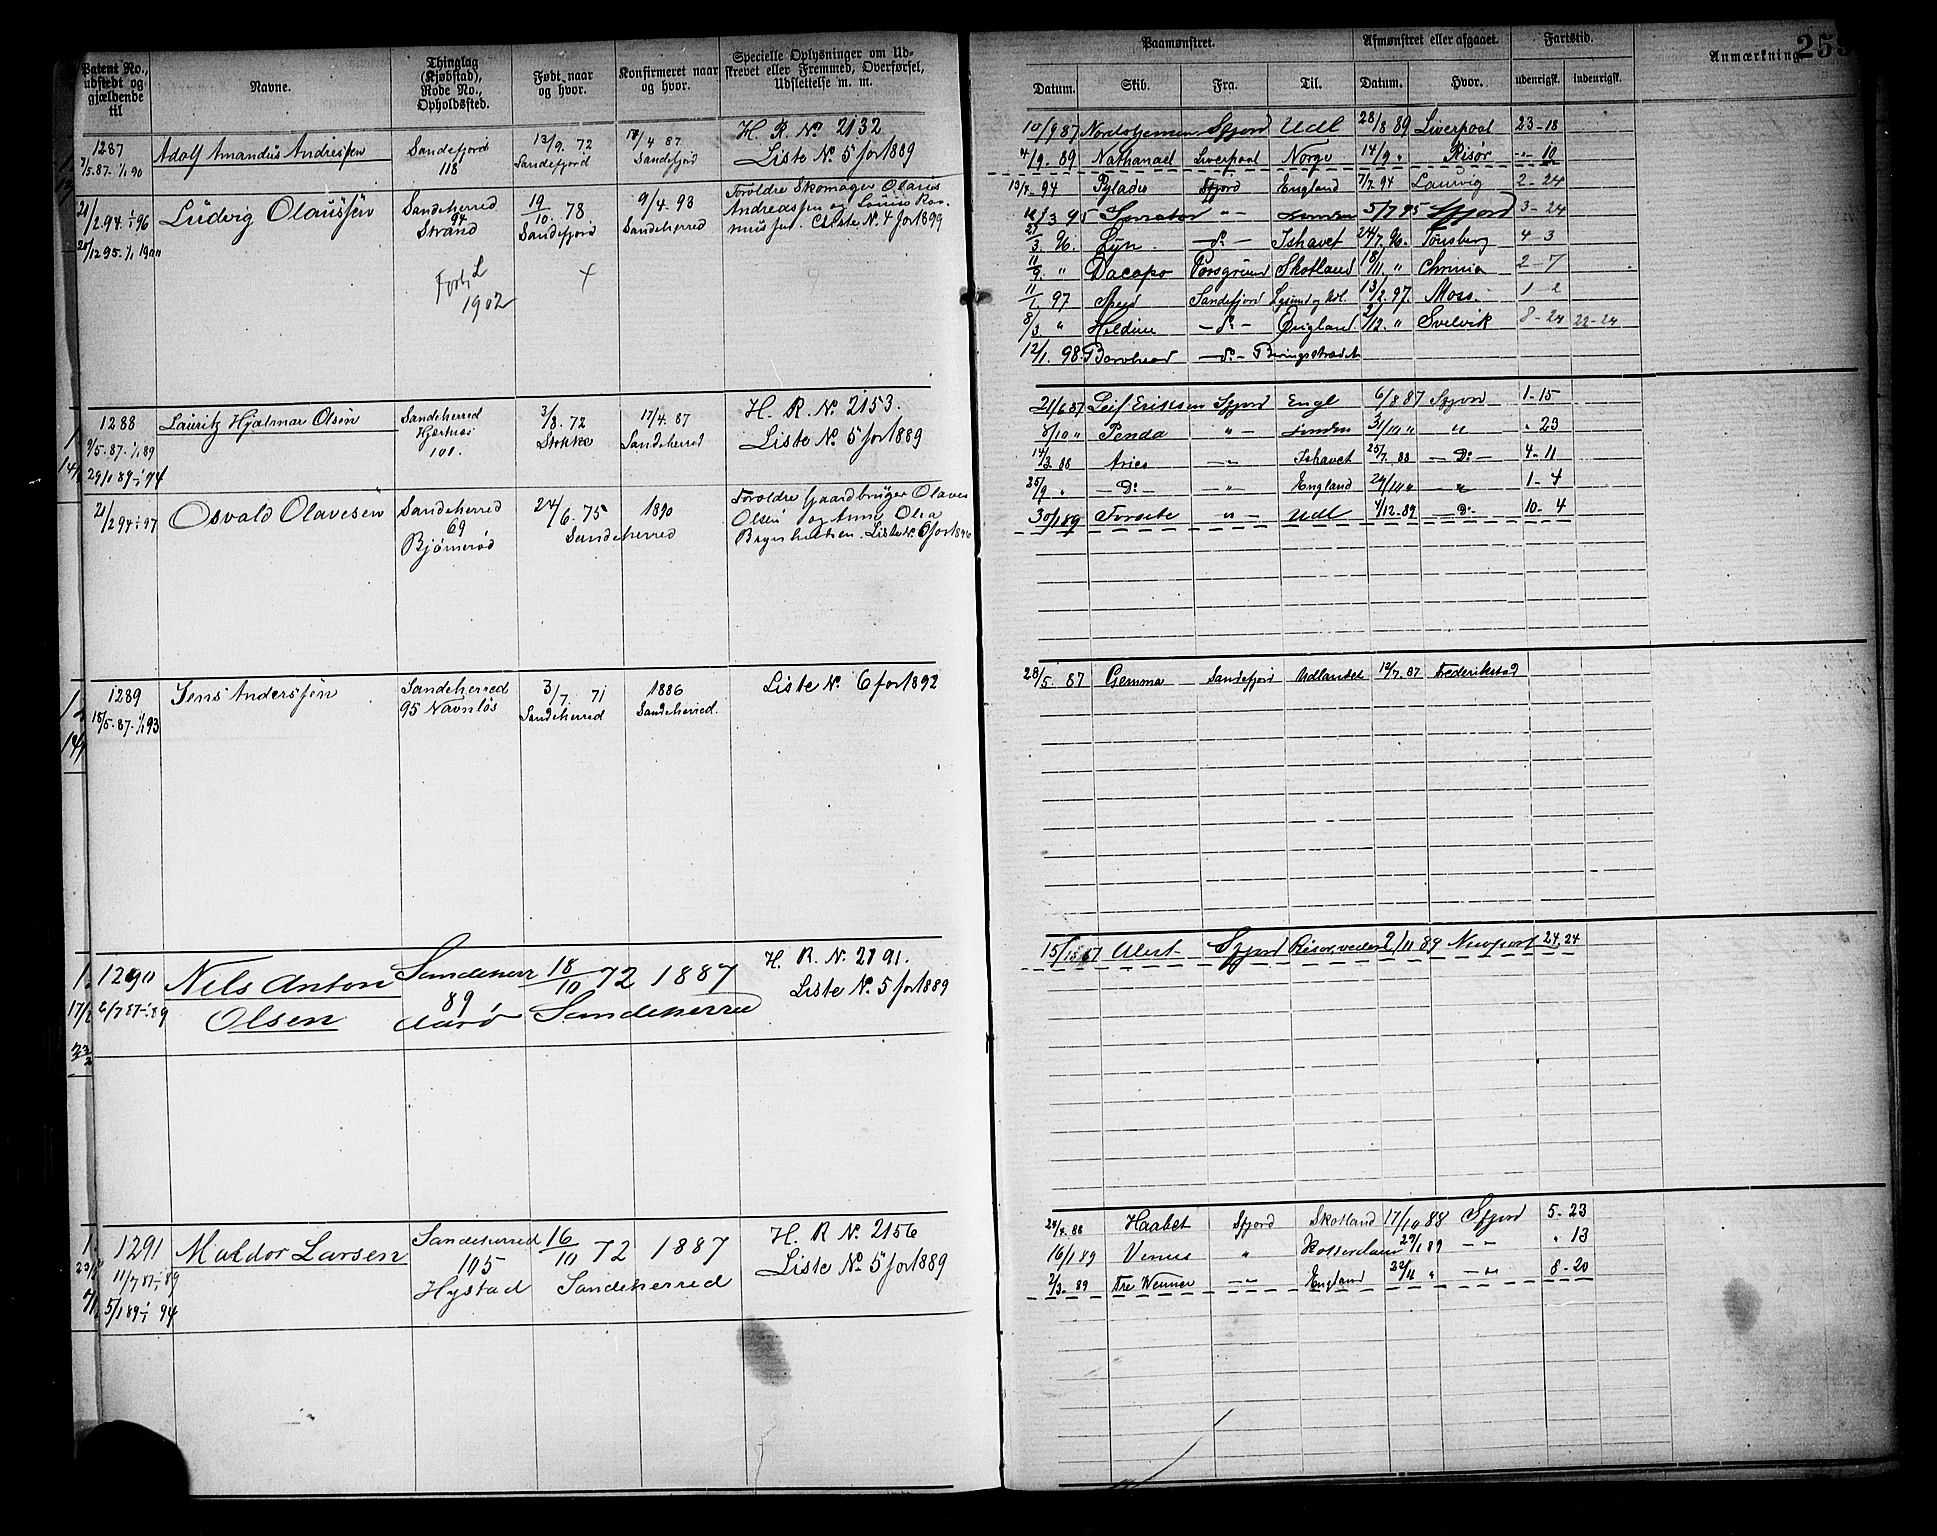 Patent No., udstedt og gjældende til
Navne.
Thinglag (Kjøbstad), Rode No., Opholdssted.
Født naar og hvor.
Konfirmeret naar og hvor.
Specielle Oplysninger om Udskrevet eller Fremmed, Overførsel, Udslettelse m. m.
1287 Adolf Amandus Andressen Sandefjord 13/9. 72 /4 87 H. R. No 2132
/5.87-1/1 90 118 Sandefjord Sandefjord Liste No. 5 for 1889
21/2 94 1/1 96 Ludvig Olaussen Sandeherred 19/10. 78 9/4. 93 Foroldre Skomager Olaus
94 Strand Sandefjord Sandeherred Andreassen og
20/12 95. 1/1 1900 No. 4 for 1899
1902
1288 Lauritz Hjalmar Olsen Sandeherred 3/8. 72 17/4. 87 H. R. No 2153.
9/5.87. 1/1 89 Hjertnes Stokke Sandeherred Liste No. 5 for 1889
29/1 89 1/1 94 101.
21/2 94 1/1 97 Osvald Olavesen Sandeherred 24/6. 75 1890 Foroldre Gaardbruger Olaves
69 Sandeherred Olsen og Anne
Bjørnerød
1289 Jens Anderssen Sandeherred 3/7. 71 1886 Liste No. 6 for 1892
18/5-87-1/1 93 95 Navnløs Sandeherred Sandeherred.
1290 Nils Anton Sandeherr 18/10 72 1887 H. R. No. 2191.
6/7 87-1/1 89 Olsen 89 Sandeherred Liste No. 5 for 1889
1291 Maldor Larsen Sandeherred 16/10 72 1887 H. R No. 2156
11/7 87-1/1 89 105 Sandeherred Liste No. 5 for 1889
5/1 89-1/1 94 Hystad
Paamønstret.
Afmønstret eller afgaaet.
Fartstid.
Anmærkning.
Datum. Skib. Fra. Til. Datum. Hvor. udenrigsk. indenrigsk.
10/9 87 Nordstjernen Sfjord Udl 28/8 89 Liverpool 23-18
4/9. 89 Nathanael Liverpool Norge 14/9 " Risør "- 10
13/4-94 Pylades Sfjord England 7/7. 94 Laurvig 2-24
/3 95 "- London 5/7 95 Sfjord 3-24
21/3. 96. Lyn. -do- Ishavet 24/7. 96. Tønsberg 4-3
11/9. " Dacapo Porsgrund Skotland 18/11 " Chrinia 2-7
11/1 97 Speed Sandefjord 13/2. 97. Moss.
8/3 " Heldine -do- England 2/12. " Svelvik 8-24 22-24
12/1. 98. -do-
21/6 87 Leif Eriksen Sfjord Engl 6/8 87 Sfjord 1-15
8/10 " Penda "- London 31/10 " " " 23
14/3. 88 Aries -"- Ishavet 25/7. 88 -Do- 4-11
25/9 " -Do- -"- England 24/10 " " 1-4
30/1 89 Forsete " - Udl 4/12. 89 -Do- 10-4
28/5. 87 Gemma Sandefjord Udlandet 12/7. 87 Frederikstad
Alert Sfjord 9/11 89 Newport 24, 24
24/4. 88 Haabet Sfjord Skotland 17/10 88 Sfjord 5-23
16/1 89 Venus " 29/1 89 -"- " 13
2/3. 89 Tre Venner -"- England 22/11 " -"- 8-20